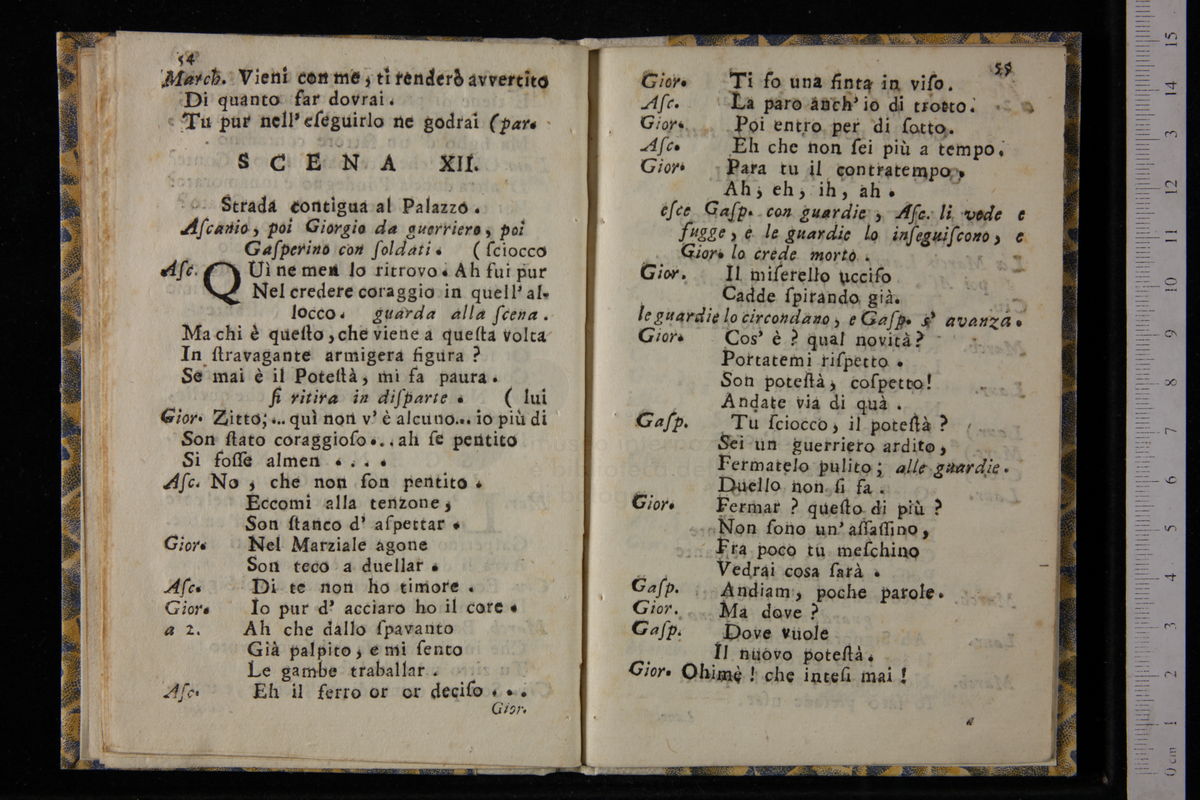 54
March. Vieni con me, ti renderò avvertito
Di quanto far dovrai.
Tu pur nell' eſeguirlo ne godrai (par.
SCENA XII.
Strada contigua al Palazzo.
Aſcanio, poi Giorgio da guerriero, poi
Gaſperino con ſoldati. (ſciocco
Aſc. QUì ne men lo ritrovo. Ah fui pur
Nel credere coraggio in quell' al-
locco. guarda alla ſcena.
Ma chi è queſto, che viene a queſta volta
In ſtravagante armigera figura ?
Se mai è il Poteſtà, mi fa paura.
ſi ritira in diſparte. ( lui
Gior. Zitto;... quì non v' è alcuno... io più di
Son ſtato coraggioſo... ah ſe pentito
Si foſſe almen ....
Aſc. No, che non ſon pentito.
Eccomi alla tenzone,
Son ſtanco d' aſpettar.
Gior. Nel Marziale agone
Son teco a duellar.
Aſc. Di te non ho timore.
Gior. Io pur d' acciaro ho il core.
a 2. Ah che dallo ſpavanto
Già palpito, e mi ſento
Le gambe traballar.
Aſc. Eh il ferro or or deciſo ...
Gior.
55
Gior. Ti fo una finta in viſo.
Aſc. La paro anch' io di trotto.
Gior. Poi entro per di ſotto.
Aſc. Eh che non ſei più a tempo.
Gior. Para tu il contratempo.
Ah, eh, ih, ah.
eſce Gaſp. con guardie, Aſc. li vede e
fugge, e le guardie lo inſeguiſcono, e
Gior. lo crede morto.
Gior. Il miſerello ucciſo
Cadde ſpirando già.
le guardie lo circondano, e Gaſp. s' avanza.
Gior. Cos' è ? qual novità ?
Portatemi riſpetto.
Son poteſtà, coſpetto!
Andate via di quà.
Gaſp. Tu ſciocco, il poteſtà ?
Sei un guerriero ardito,
Fermatelo pulito; alle guardie.
Duello non ſi fa.
Gior. Fermar ? queſto di più ?
Non ſono un' aſſaſſino,
Fra poco tu meſchino
Vedrai coſa ſarà.
Gaſp. Andiam, poche parole.
Gior. Ma dove ?
Gaſp. Dove vuole
Il nuovo poteſtà.
Gior. Ohimè ! che inteſi mai !